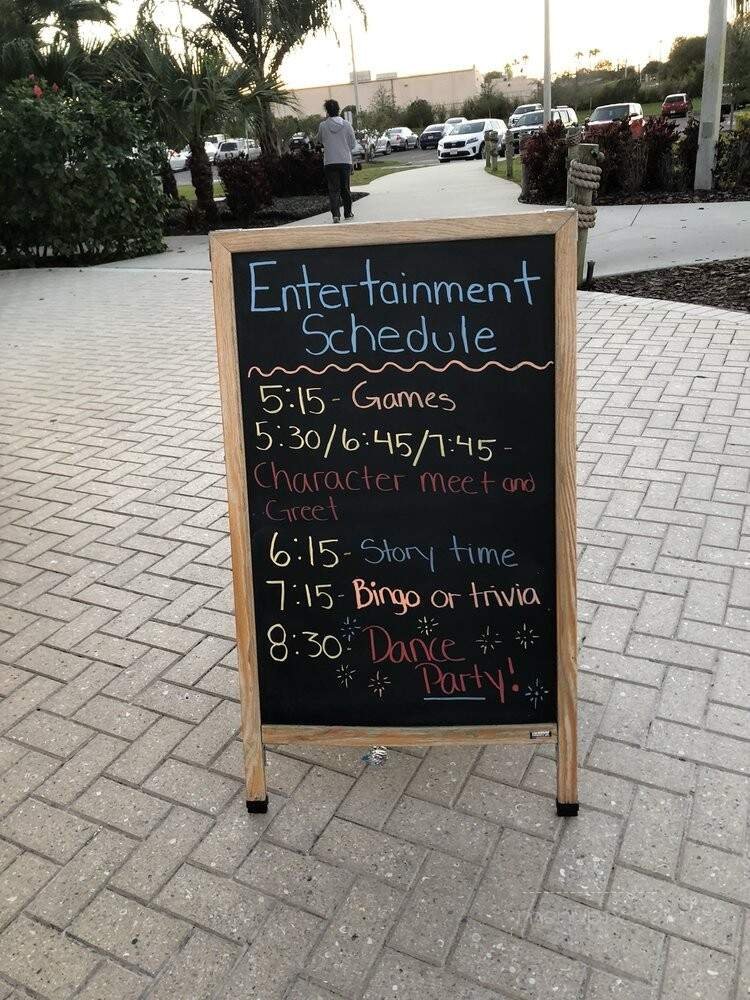 Entertainment
Schedule
5:15- Games
5:30/6:45/7:45-
Character meet and
Greet
6:15- Story time
7:15- Bingo or trivia
8:30- Dance
Party!